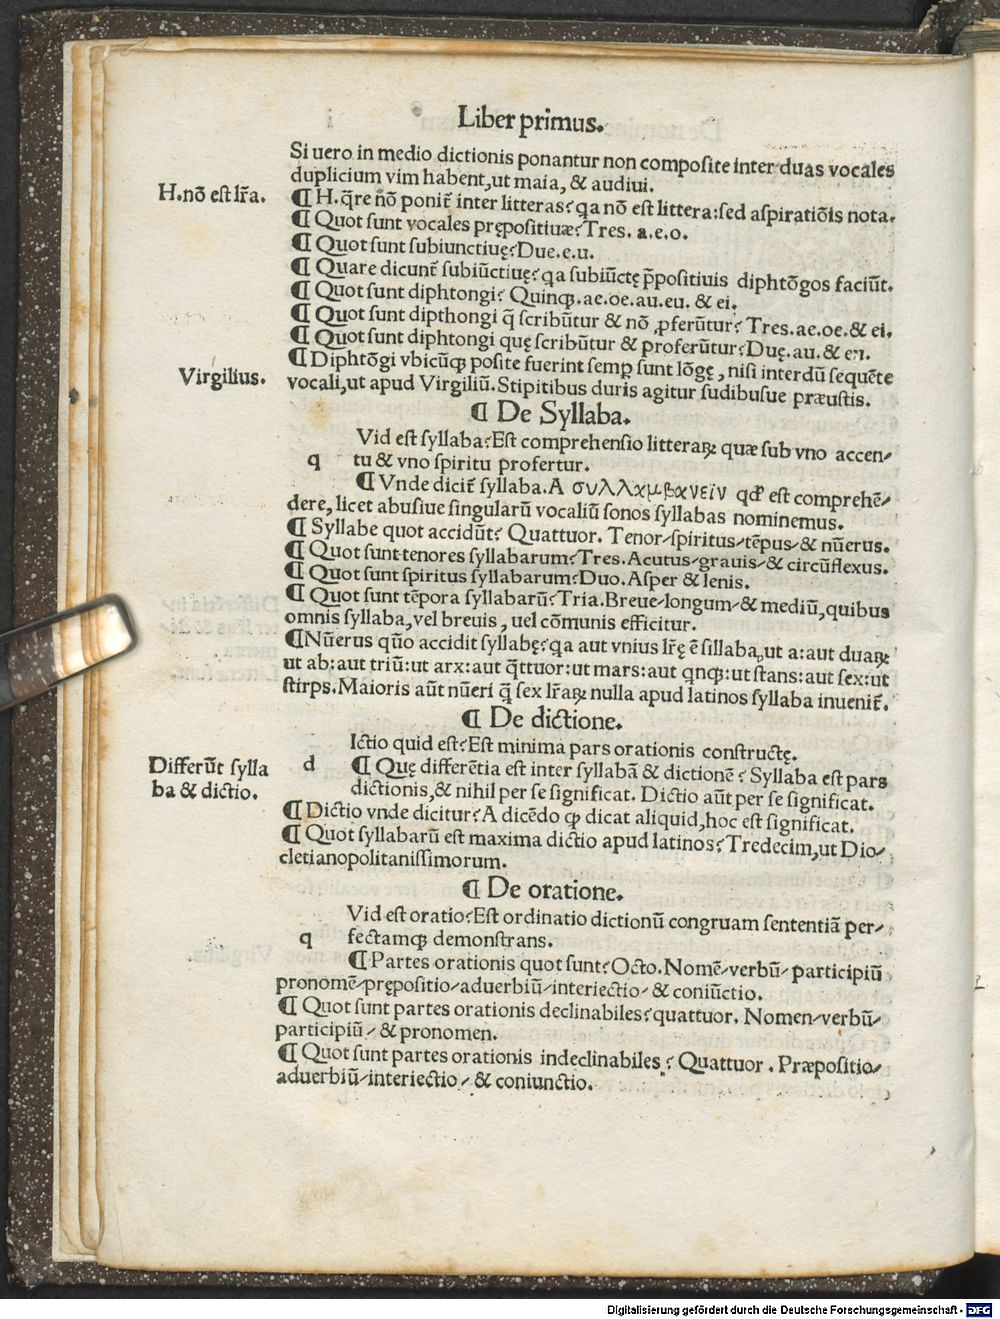 Liber primus.
Si uero in medio dictionis ponantur non composite inter duas vocales
duplicium vim habent,ut maia, & audiui.
H.nō est lr̄a.
¶ H. q̄re nō ponit̄ inter litteras? qa nō est littera:sed aspiratiōis nota.
¶ Quot sunt vocales prępositiuæ? Tres. a.e.o.
¶ Quot sunt subiunctiuę? Due.e.u.
¶ Quare dicunt̄ subiūctiuę? qa subiūctę p̄positiuis diphtōgos faciūt.
¶ Quot sunt diphtongi? Quinqꝫ.ae.oe.au.eu. & ei.
¶ Quot sunt dipthongi q̄ scribūtur & nō ꝓferūtur? Tres.ae.oe.& ei.
¶ Quot sunt diphtongi quę scribūtur & proferūtur? Duę.au. & eu.
¶ Diphtōgi vbicūqꝫ posite fuerint semꝑ sunt lōgę, nisi interdū sequēte
Virgilius.
vocali,ut apud Virgiliū. Stipitibus duris agitur sudibusue præustis.
¶ De Syllaba.
q Vid est syllaba? Est comprehensio litteraꝝ quæ sub vno accen⸗
tu & vno spiritu profertur.
¶ Vnde dicit̄ syllaba. A συλλαμβανειν qđ est comprehē⸗
dere, licet abusiue singularū vocaliū sonos syllabas nominemus.
¶ Syllabe quot accidūt? Quattuor. Tenor/spiritus/tēpus/& nūerus.
¶ Quot sunt tenores syllabarum? Tres. Acutus/grauis/& circūflexus.
¶ Quot sunt spiritus syllabarum? Duo. Asper & lenis.
¶ Quot sunt tēpora syllabarū? Tria. Breue/longum/& mediū,quibus
omnis syllaba,vel breuis, uel cōmunis efficitur.
¶ Nūerus quō accidit syllabę? qa aut vnius lr̄ę ē sillaba,ut a:aut duaꝝ
ut ab:aut triū:ut arx:aut q̄ttuor:ut mars:aut qnqꝫ:ut stans:aut sex:ut
stirps. Maioris aūt nūeri q̄ sex lr̄aꝝ nulla apud latinos syllaba inuenit̄.
¶ De dictione.
d Ictio quid est? Est minima pars orationis constructę.
Differūt sylla
ba & dictio.
¶ Quę differētia est inter syllabā & dictionē? Syllaba est pars
dictionis,& nihil per se significat. Dictio aūt per se significat.
¶ Dictio vnde dicitur? A dicēdo qꝫ dicat aliquid,hoc est significat.
¶ Quot syllabarū est maxima dictio apud latinos? Tredecim,ut Dio⸗
cletianopolitanissimorum.
¶ De oratione.
q Vid est oratio? Est ordinatio dictionū congruam sententiā per⸗
fectamqꝫ demonstrans.
¶ Partes orationis quot sunt? Octo. Nomē/verbū/participiū
pronomē/prępositio/aduerbiū/interiectio/& coniūctio.
¶ Quot sunt partes orationis declinabiles? quattuor. Nomen/verbū/
participiū/& pronomen.
¶ Quot sunt partes orationis indeclinabiles? Quattuor. Præpositio/
aduerbiū/interiectio/& coniunctio.
Digitalisierung gefördert durch die Deutsche Forschungsgemeinschaft - DFG